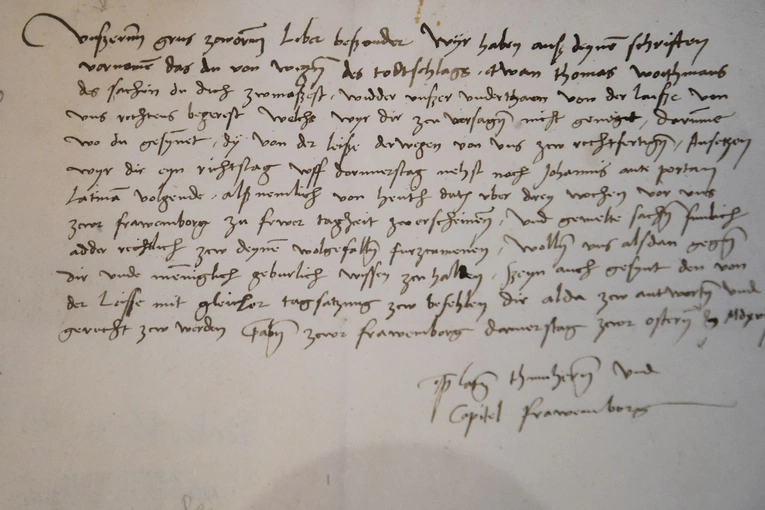 Unszerinn grus zcworann Liber beszonder Wyr haben ausz deynenn schriften
vornomen das du von wegen des todtschlags etwan Thomas
des sachen du dich zcwmassest, widder unszer underthaen von der Lausze von
uns rechtens begerest Welchs wyr dir zcw versagen nicht geneiget, dorumme
wo du gesynnet, dy von der leisse derwegen von uns zcw rechtfertigen, Ansetzen
wyr dir eyn richtstag uff donnerstag nehst noch Johannis ante portam
Latinam volgende, alsz nemlich von heuth dato uber dreyen wochen vor uns
zcwr Frawenborg zu frwer tagzeit zcw erscheinenn, und gemelte sachen funtlich
adder rechtlich zcw deynem wolgefallen furzcunemen, Wollen uns alsdan gegen
dir unde menniglich geburlich wissen zcw halten, Seyn auch gesynt den von
der Leisse mit gleicher tagsatzung zcw befehlen dir alda zcw antworten und
gerecht zcw werden Gaben zcwr Frawemborg donnerstag zcwr ostern
thumherren und
Capitel Frawemborg